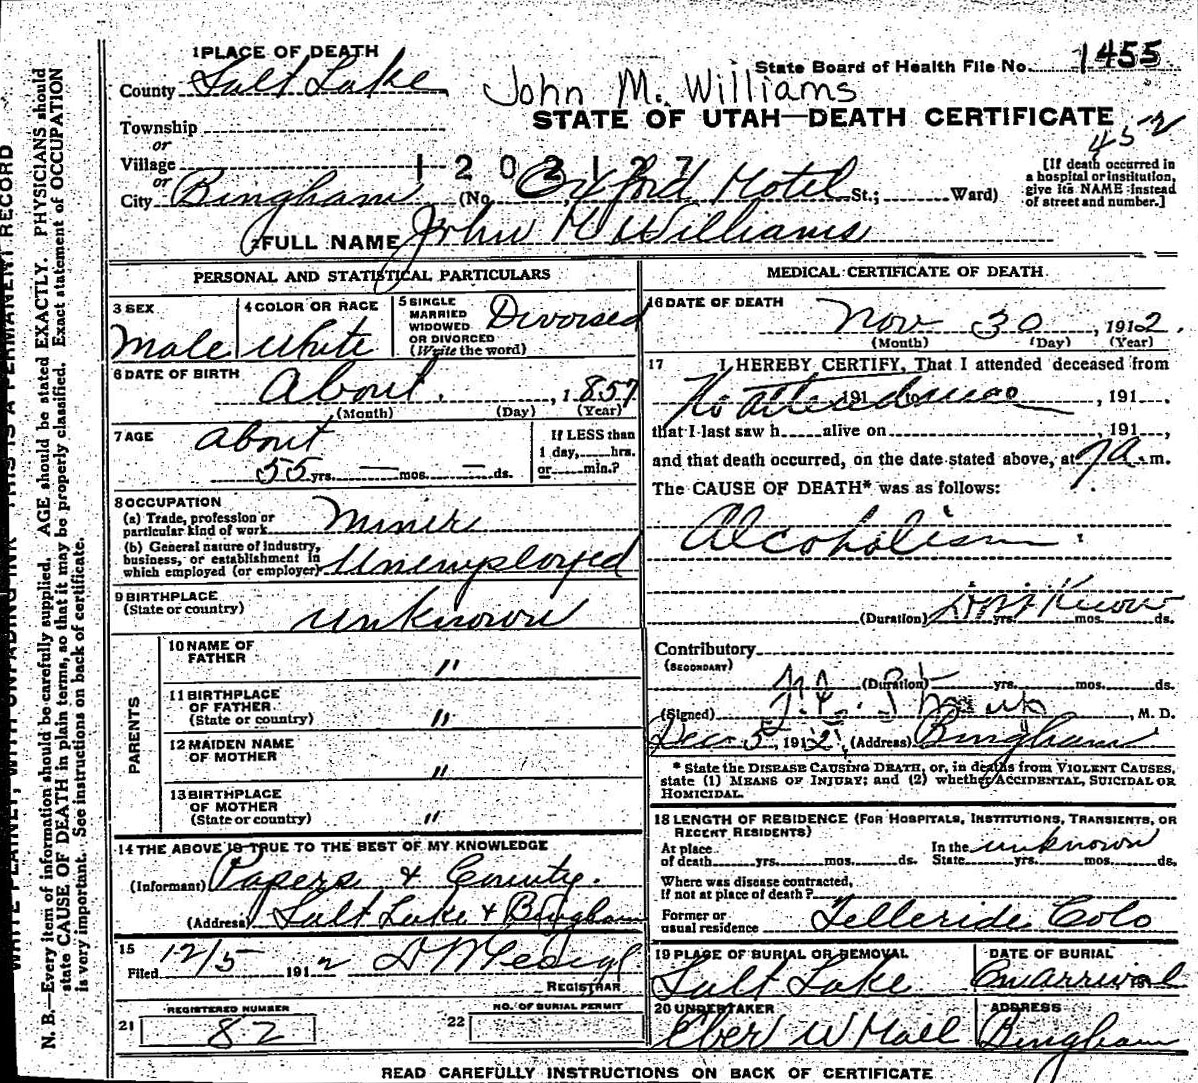 1 PLACE OF DEATH
State Board of Health File No. 1455
County Salt Lake
John M. Williams
STATE OF UTAH—DEATH CERTIFICATE
45-2
Township
or
Village
1202127
or
City Bingham (No. Oxford Hotel St.; Ward)
[If death occurred in
a hospital or institution,
give its NAME instead
of street and number.]
2 FULL NAME John M Williams
PERSONAL AND STATISTICAL PARTICULARS
3 SEX Male
4 COLOR OR RACE White
5 SINGLE
MARRIED
WIDOWED
OR DIVORCED
(Write the word)
Divorsed
6 DATE OF BIRTH
About , 1857
(Month) (Day) (Year)
7 AGE About
55 yrs. — mos. — ds.
If LESS than
1 day, hrs.
or min.?
8 OCCUPATION
(a) Trade, profession or
particular kind of work Miner
(b) General nature of industry,
business, or establishment in
which employed (or employer) Unemployed
9 BIRTHPLACE
(State or country) unknown
PARENTS
10 NAME OF
FATHER "
11 BIRTHPLACE
OF FATHER
(State or country) "
12 MAIDEN NAME
OF MOTHER "
13 BIRTHPLACE
OF MOTHER
(State or country) "
14 THE ABOVE IS TRUE TO THE BEST OF MY KNOWLEDGE
(Informant) Papers & County.
(Address) Salt Lake & Bingham
15
Filed 12/5 1912
REGISTRAR
REGISTERED NUMBER
21 82
NO. OF BURIAL PERMIT
22
MEDICAL CERTIFICATE OF DEATH
16 DATE OF DEATH
Nov 30, 1912.
(Month) (Day) (Year)
17 I HEREBY CERTIFY, That I attended deceased from
No attendance 191 to , 191 .
that I last saw h alive on 191 ,
and that death occurred, on the date stated above, at 7 a. m.
The CAUSE OF DEATH* was as follows:
Alcoholism
(Duration) Don't Know yrs. mos. ds.
Contributory
(SECONDARY)
(Duration) yrs. mos. ds.
(Signed) , M. D.
Dec 5, 1912, (Address) Bingham
* State the DISEASE CAUSING DEATH, or, in deaths from VIOLENT CAUSES,
state (1) MEANS OF INJURY; and (2) whether ACCIDENTAL, SUICIDAL OR
HOMICIDAL.
18 LENGTH OF RESIDENCE (FOR HOSPITALS, INSTITUTIONS, TRANSIENTS, OR
RECENT RESIDENTS)
At place
of death yrs. mos. ds.
In the
State unknown yrs. mos. ds.
Where was disease contracted,
If not at place of death?
Former or
usual residence Telleride Colo
19 PLACE OF BURIAL OR REMOVAL
Salt Lake
DATE OF BURIAL
On arrival 191
20 UNDERTAKER
Eber W Hall
ADDRESS
Bingham
READ CAREFULLY INSTRUCTIONS ON BACK OF CERTIFICATE
WRITE PLAINLY, WITH UNFADING INK—THIS IS A PERMANENT RECORD
N. B.—Every item of information should be carefully supplied. AGE should be stated EXACTLY. PHYSICIANS should
state CAUSE OF DEATH in plain terms, so that it may be properly classified. Exact statement of OCCUPATION
is very important. See instructions on back of certificate.